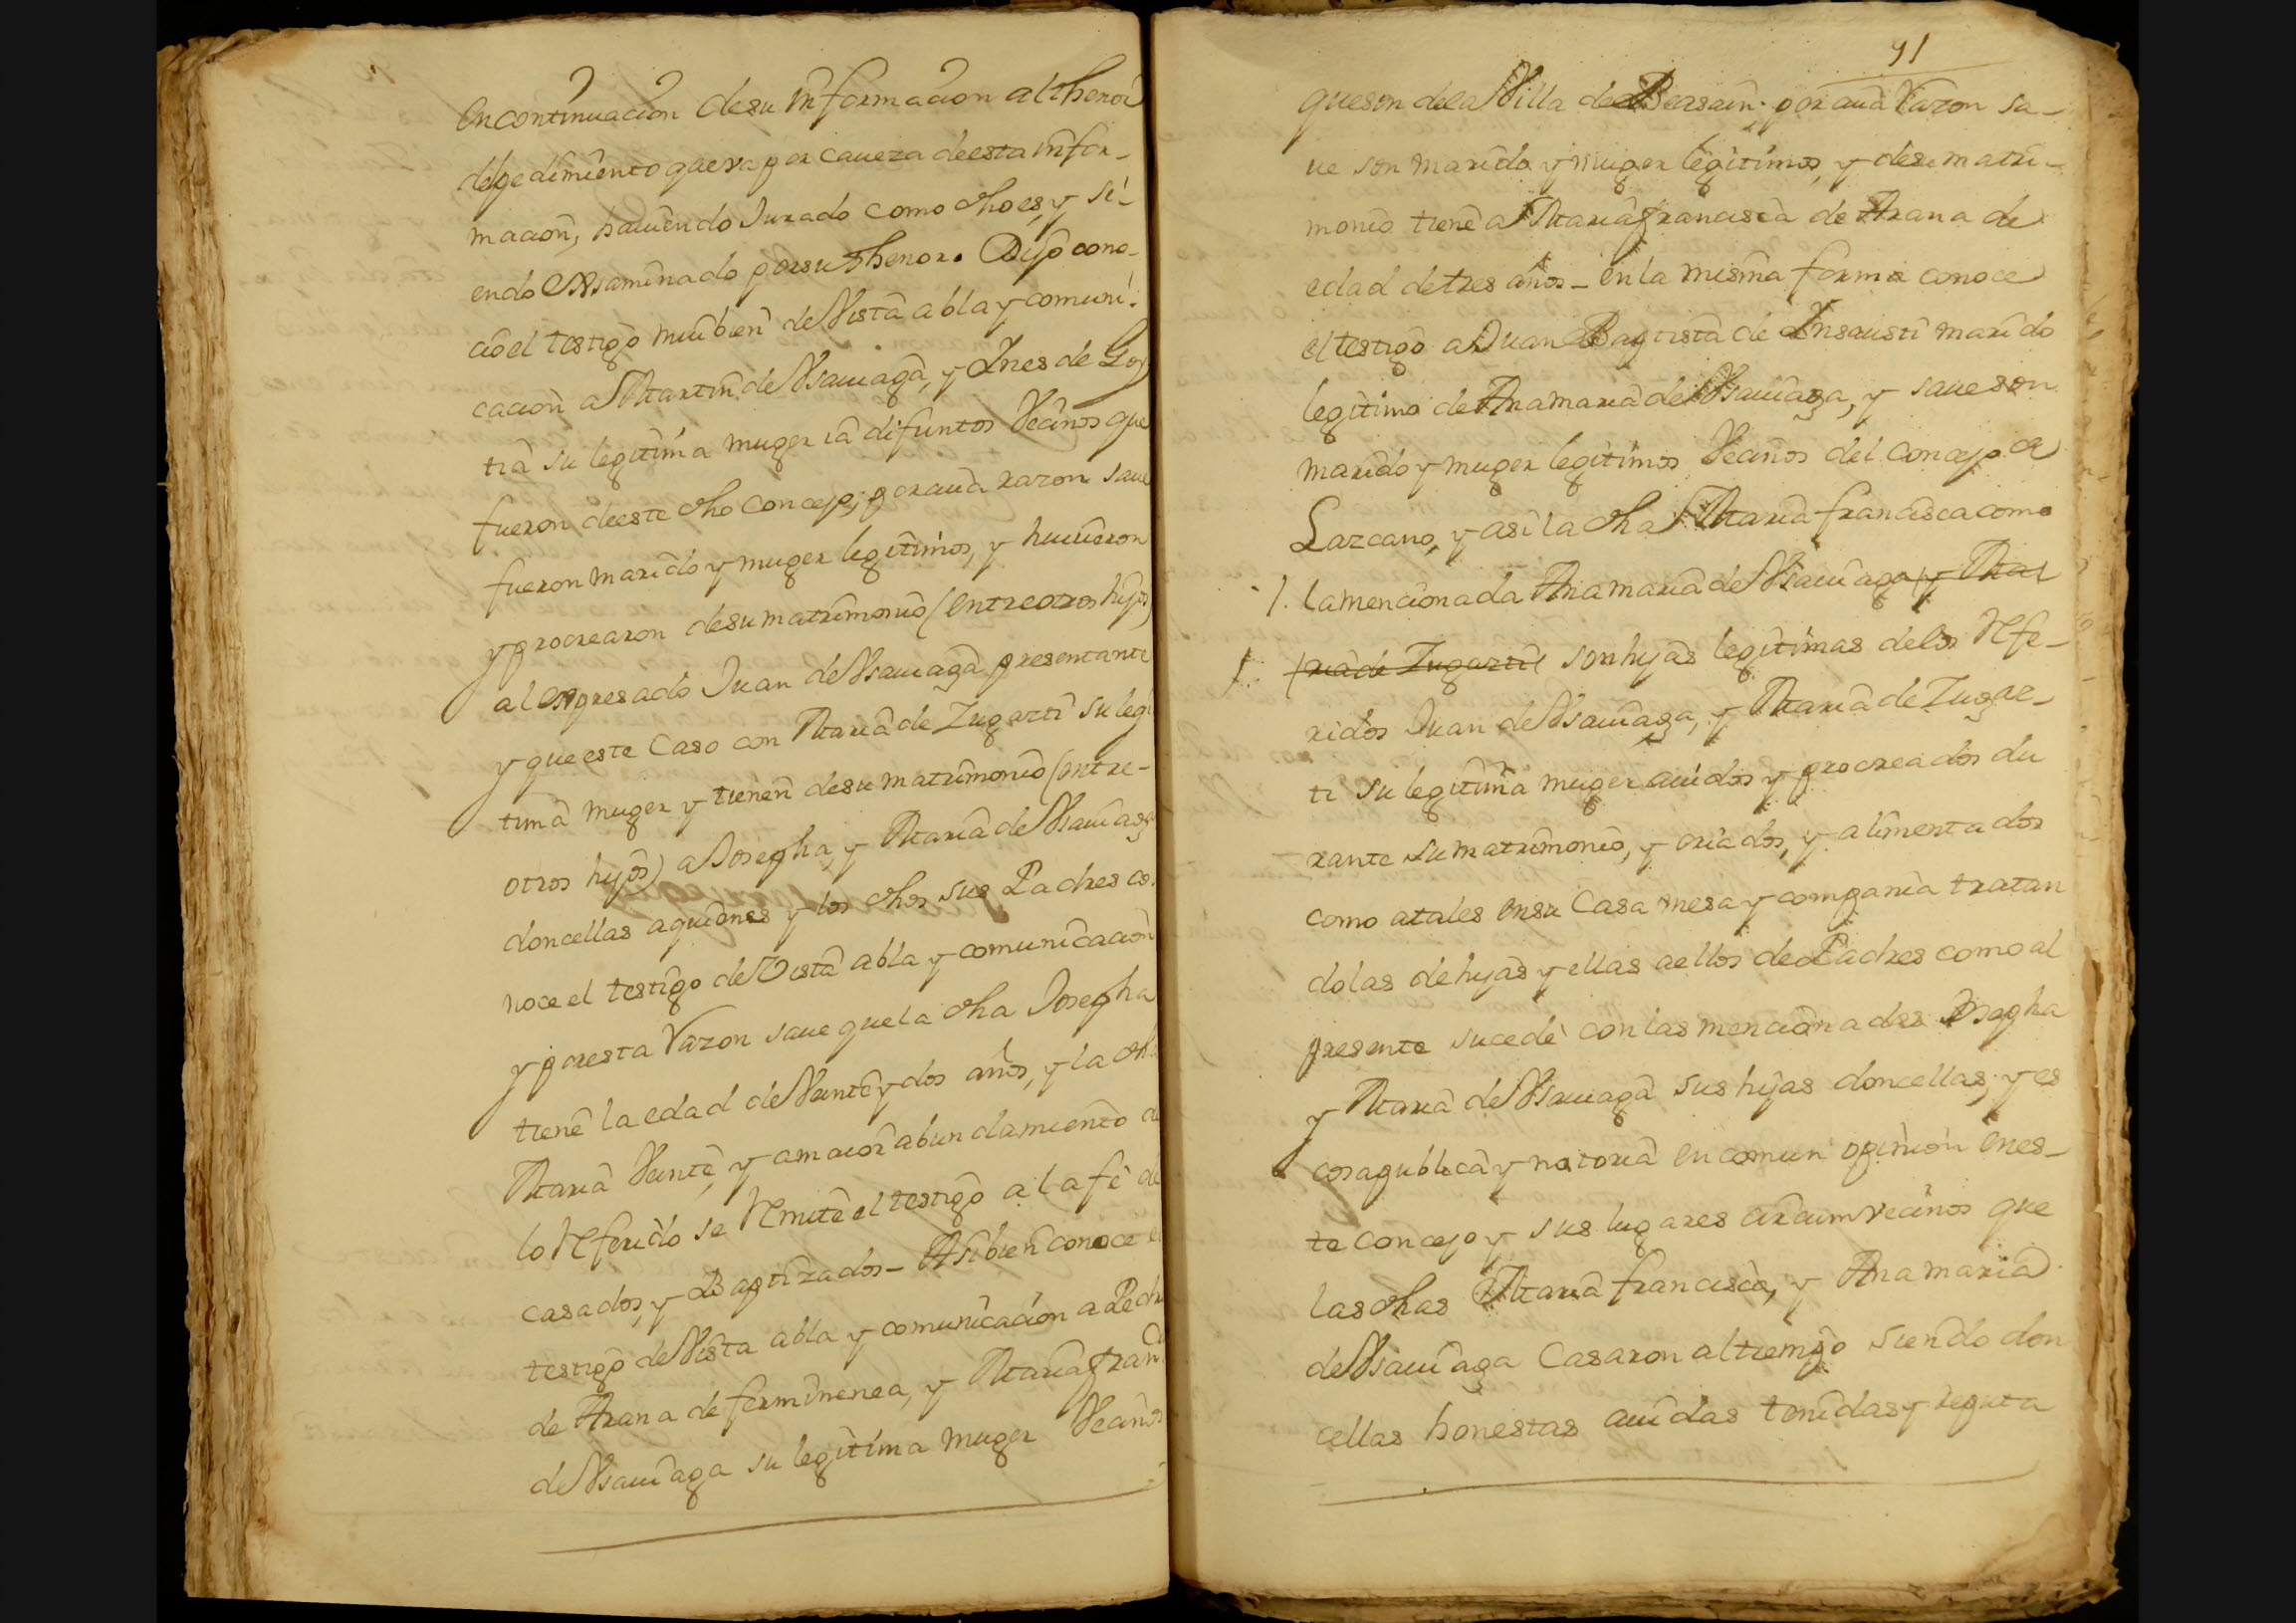 en continuacion de su informacion al thenor
del pedimiento que va por caueza de esta infor-
macion, hauiendo Jurado como dho es, y si-
endo exsaminado por su thenor. Dijo cono-
cio el testigo mui bien de Vista abla y comuni-
cacion a Martin de Ysauaga, y Ynes de Goy
tia su legitima muger ia difuntos Vecinos que
fueron de este dho Concejo, por cuia razon saue
fueron marido y muger legitimos, y huuieron
y procrearon de su matrimonio (entre otros hijos)
al expresado Juan de Ysauaga presentante
y que este Caso con Maria de Zugarti su legi
tima muger y tienen de su matrimonio (entre-
otros hijos) a Josepha, y Maria de Ysauaga
doncellas a quienes y los dhos sus Padres co-
noce el testigo de Vista abla y comunicacion
y por esta Razon saue que la dha Josepha
tiene la edad de Veinte y dos años, y la dha
Maria Veinte, y a maior abundamiento de
lo Referido se Remite el testigo a la fe de
casados, y Baptizados- Asi bien conoce el
testigo de Vista abla y comunicacion a Pedro
de Arana de ferminenea, y Maria franca
de Ysauaga su legitima muger Vecinos
91
que son de la Villa de Beasain. por cuia Razon sa-
ue son marido y muger legitimos, y de su matri-
monio tiene a Maria francisca de Arana de
edad de tres años- en la misma forma conoce
el testigo a Juan Baptista de Ynsausti marido
legitimo de Ana maria de Ysauaga, y saue son
marido y muger legitimos Vecinos del concejo de
Lazcano, y asi la dha Maria francisca como
la mencionada Ana maria de Ysauaga y Ma
ria de Zugarti son hijas legitimas de los Refe-
ridos Juan de Ysauaga, y Maria de Zugar-
ti su legitima muger auidos y procreados du
rante su matrimonio, y criados, y alimentados
como a tales en su Casa mesa y compania tratan
dolas de hijas y ellas a ellos de Padres como al
presente sucede con las mencionadas Josepha
y Maria de Ysauaga sus hijas doncellas, y es
cosa publica y notoria en comun opinion en es-
te concejo y sus lugares circumvecinos que
las dhas Maria francisca, y Ana maria
de Ysauaga Casaron al tiempo siendo don
cellas honestas auidas tenidas y reputa